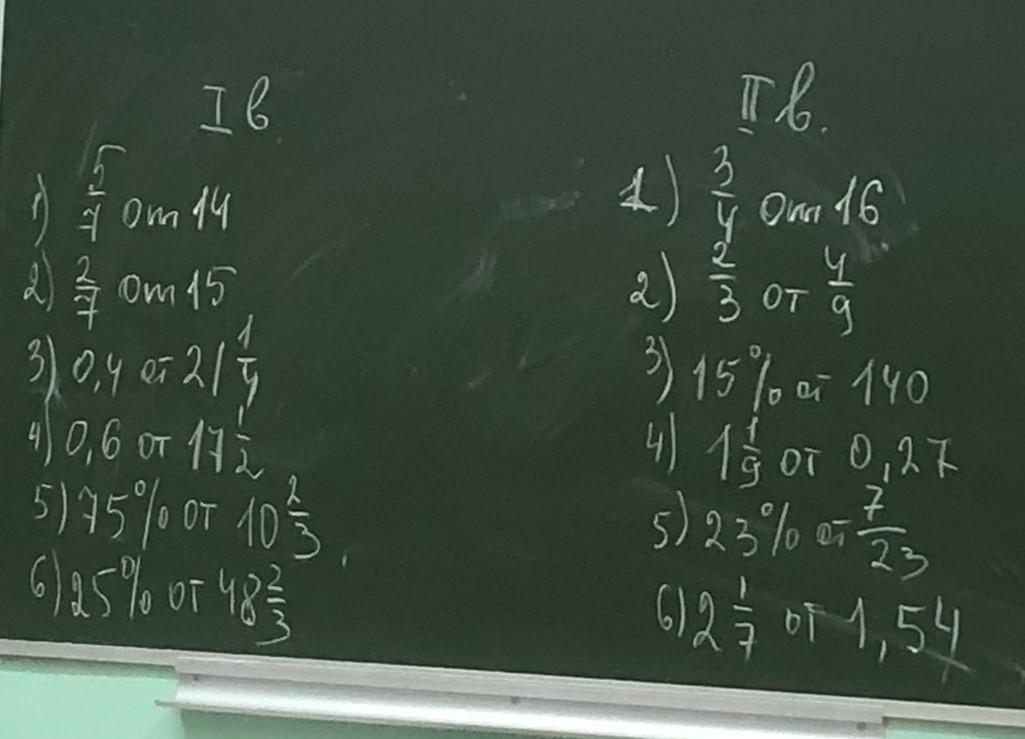 I в
1) 5/7 от 14
2) 2/7 от 15
3) 0,4 от 21 1/4
4) 0,6 от 17 1/2
5) 75% от 10 2/3
6) 25% от 48 2/3
II в.
1) 3/4 от 16
2) 2/3 от 4/9
3) 15% от 140
4) 1 1/9 от 0,27
5) 23% от 7/23
6) 2 1/7 от 1,54